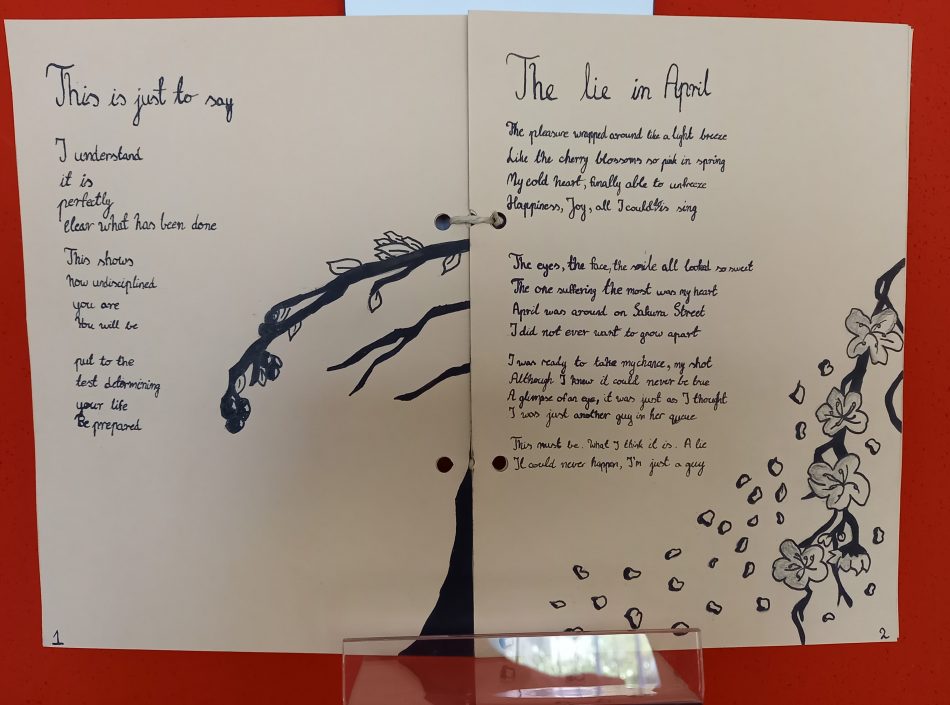 This is just to say
I understand
it is
perfectly
clear what has been done
This shows
how undisciplined
you are
You will be
put to the
test determining
your life
Be prepared
1
The lie in April
The pleasure wrapped around like a light breeze
Like the cherry blossoms so pink in spring
My cold heart, finally able to unfreeze
Happiness, Joy, all I could do is sing
The eyes, the face, the smile all looked so sweet
The one suffering the most was my heart
April was around on Sakura Street
I did not ever want to grow apart
I was ready to take my chance, my shot
Although I knew it could never be true
A glimpse of an eye, it was just as I thought
I was just another guy in her queue
This must be. What I think it is. A lie
It could never happen, I'm just a guy
2